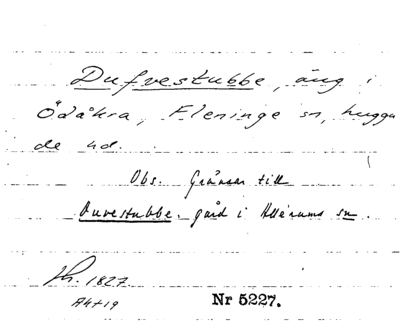 Dufvestubbe, äng i
Ödåkra, Fleninge sn, Luggu
de hd.
Obs. Gränsar till
Duvestubbe, gård i Allerums sn.
Kh. 1827
A4+19
Nr 5227.